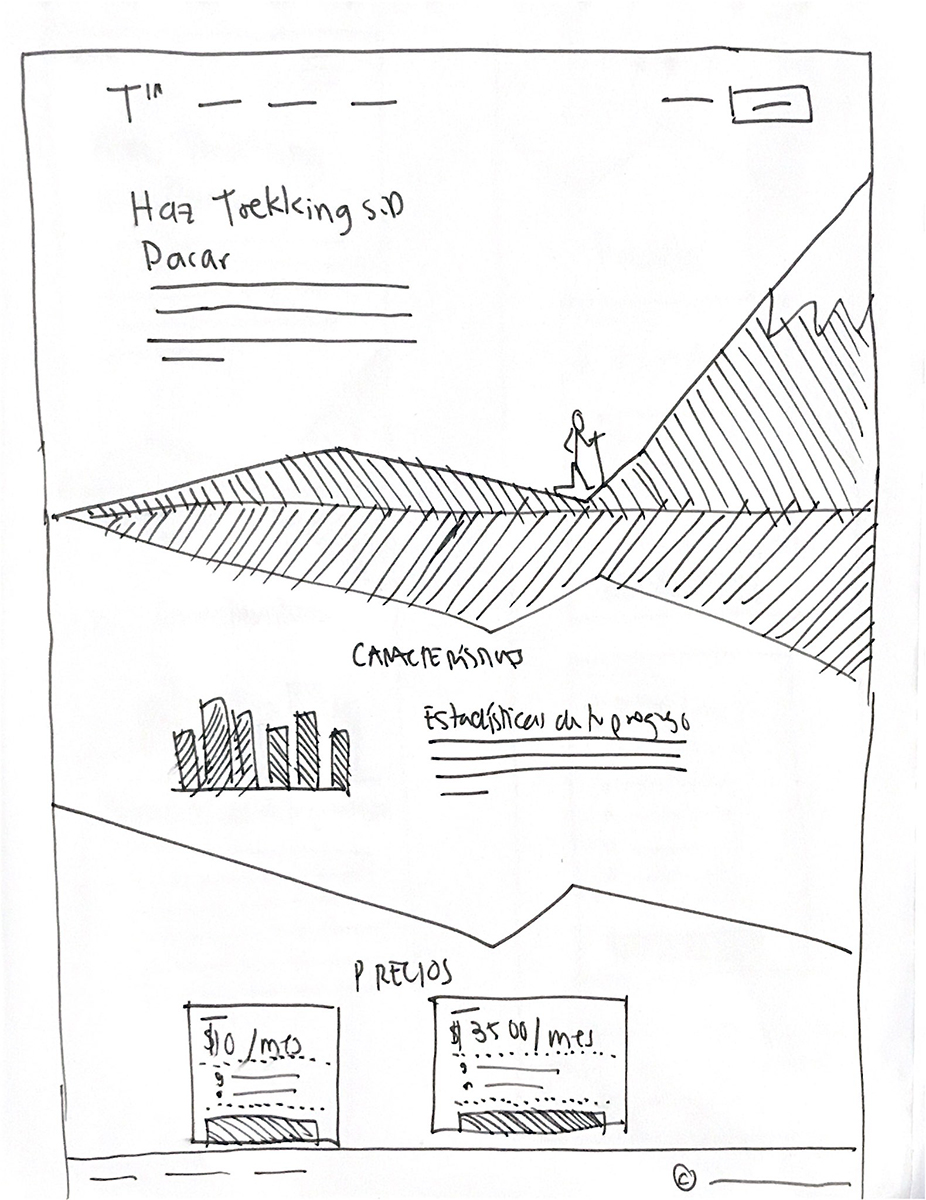 Tᴵᴺ
Haz Trekking sin
Parar
CARACTERÍSTICAS
Estadísticas de tu progreso
PRECIOS
$10 /mes
$3500/mes
©